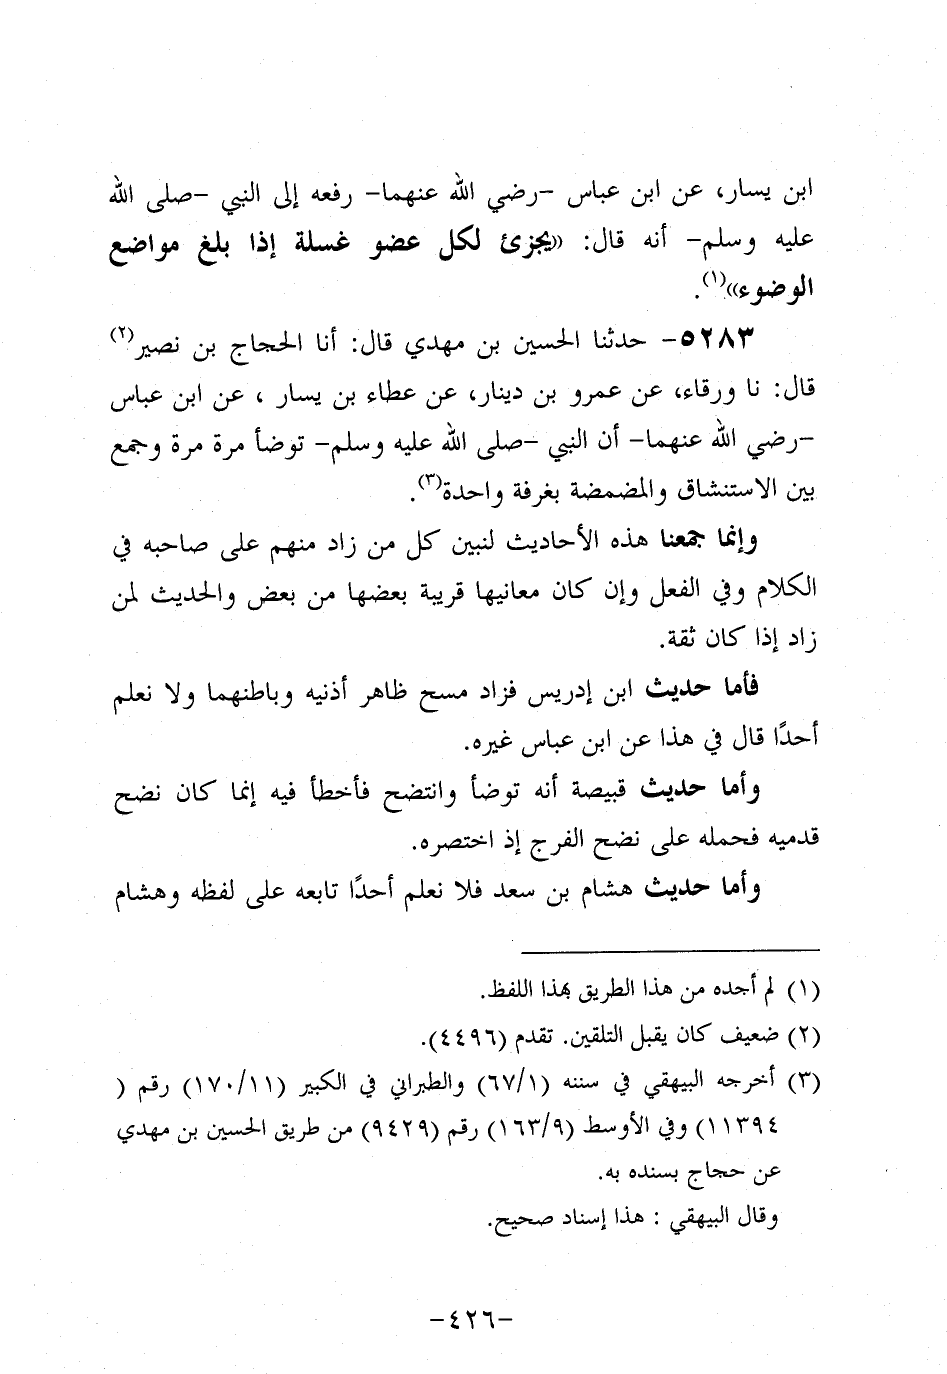 ابن يسار، عن ابن عباس -رضي الله عنهما- رفعه إلى النبي -صلى الله
عليه وسلم- أنه قال: «يجزئ لكل عضو غسلة إذا بلغ مواضع
الوضوء»(١).
٥٢٨٣- حدثنا الحسين بن مهدي قال: أنا الحجاج بن نصير(٢)
قال: نا ورقاء، عن عمرو بن دينار، عن عطاء بن يسار ، عن ابن عباس
-رضي الله عنهما- أن النبي -صلى الله عليه وسلم- توضأ مرة مرة وجمع
بين الاستنشاق والمضمضة بغرفة واحدة(٣).
وإنما جمعنا هذه الأحاديث لنبين كل من زاد منهم على صاحبه في
الكلام وفي الفعل وإن كان معانيها قريبة بعضها من بعض والحديث لمن
زاد إذا كان ثقة.
فأما حديث ابن إدريس فزاد مسح ظاهر أذنيه وباطنهما ولا نعلم
أحدًا قال في هذا عن ابن عباس غيره.
وأما حديث قبيصة أنه توضأ وانتضح فأخطأ فيه إنما كان نضح
قدميه فحمله على نضح الفرج إذ اختصره.
وأما حديث هشام بن سعد فلا نعلم أحدًا تابعه على لفظه وهشام
(١) لم أجده من هذا الطريق بهذا اللفظ.
(٢) ضعيف كان يقبل التلقين. تقدم (٤٤٩٦).
(٣) أخرجه البيهقي في سننه (٦٧/١) والطبراني في الكبير (١٧٠/١١) رقم (
١١٣٩٤) وفي الأوسط (١٦٣/٩) رقم (٩٤٢٩) من طريق الحسين بن مهدي
عن حجاج بسنده به.
وقال البيهقي : هذا إسناد صحيح.
-٤٢٦-